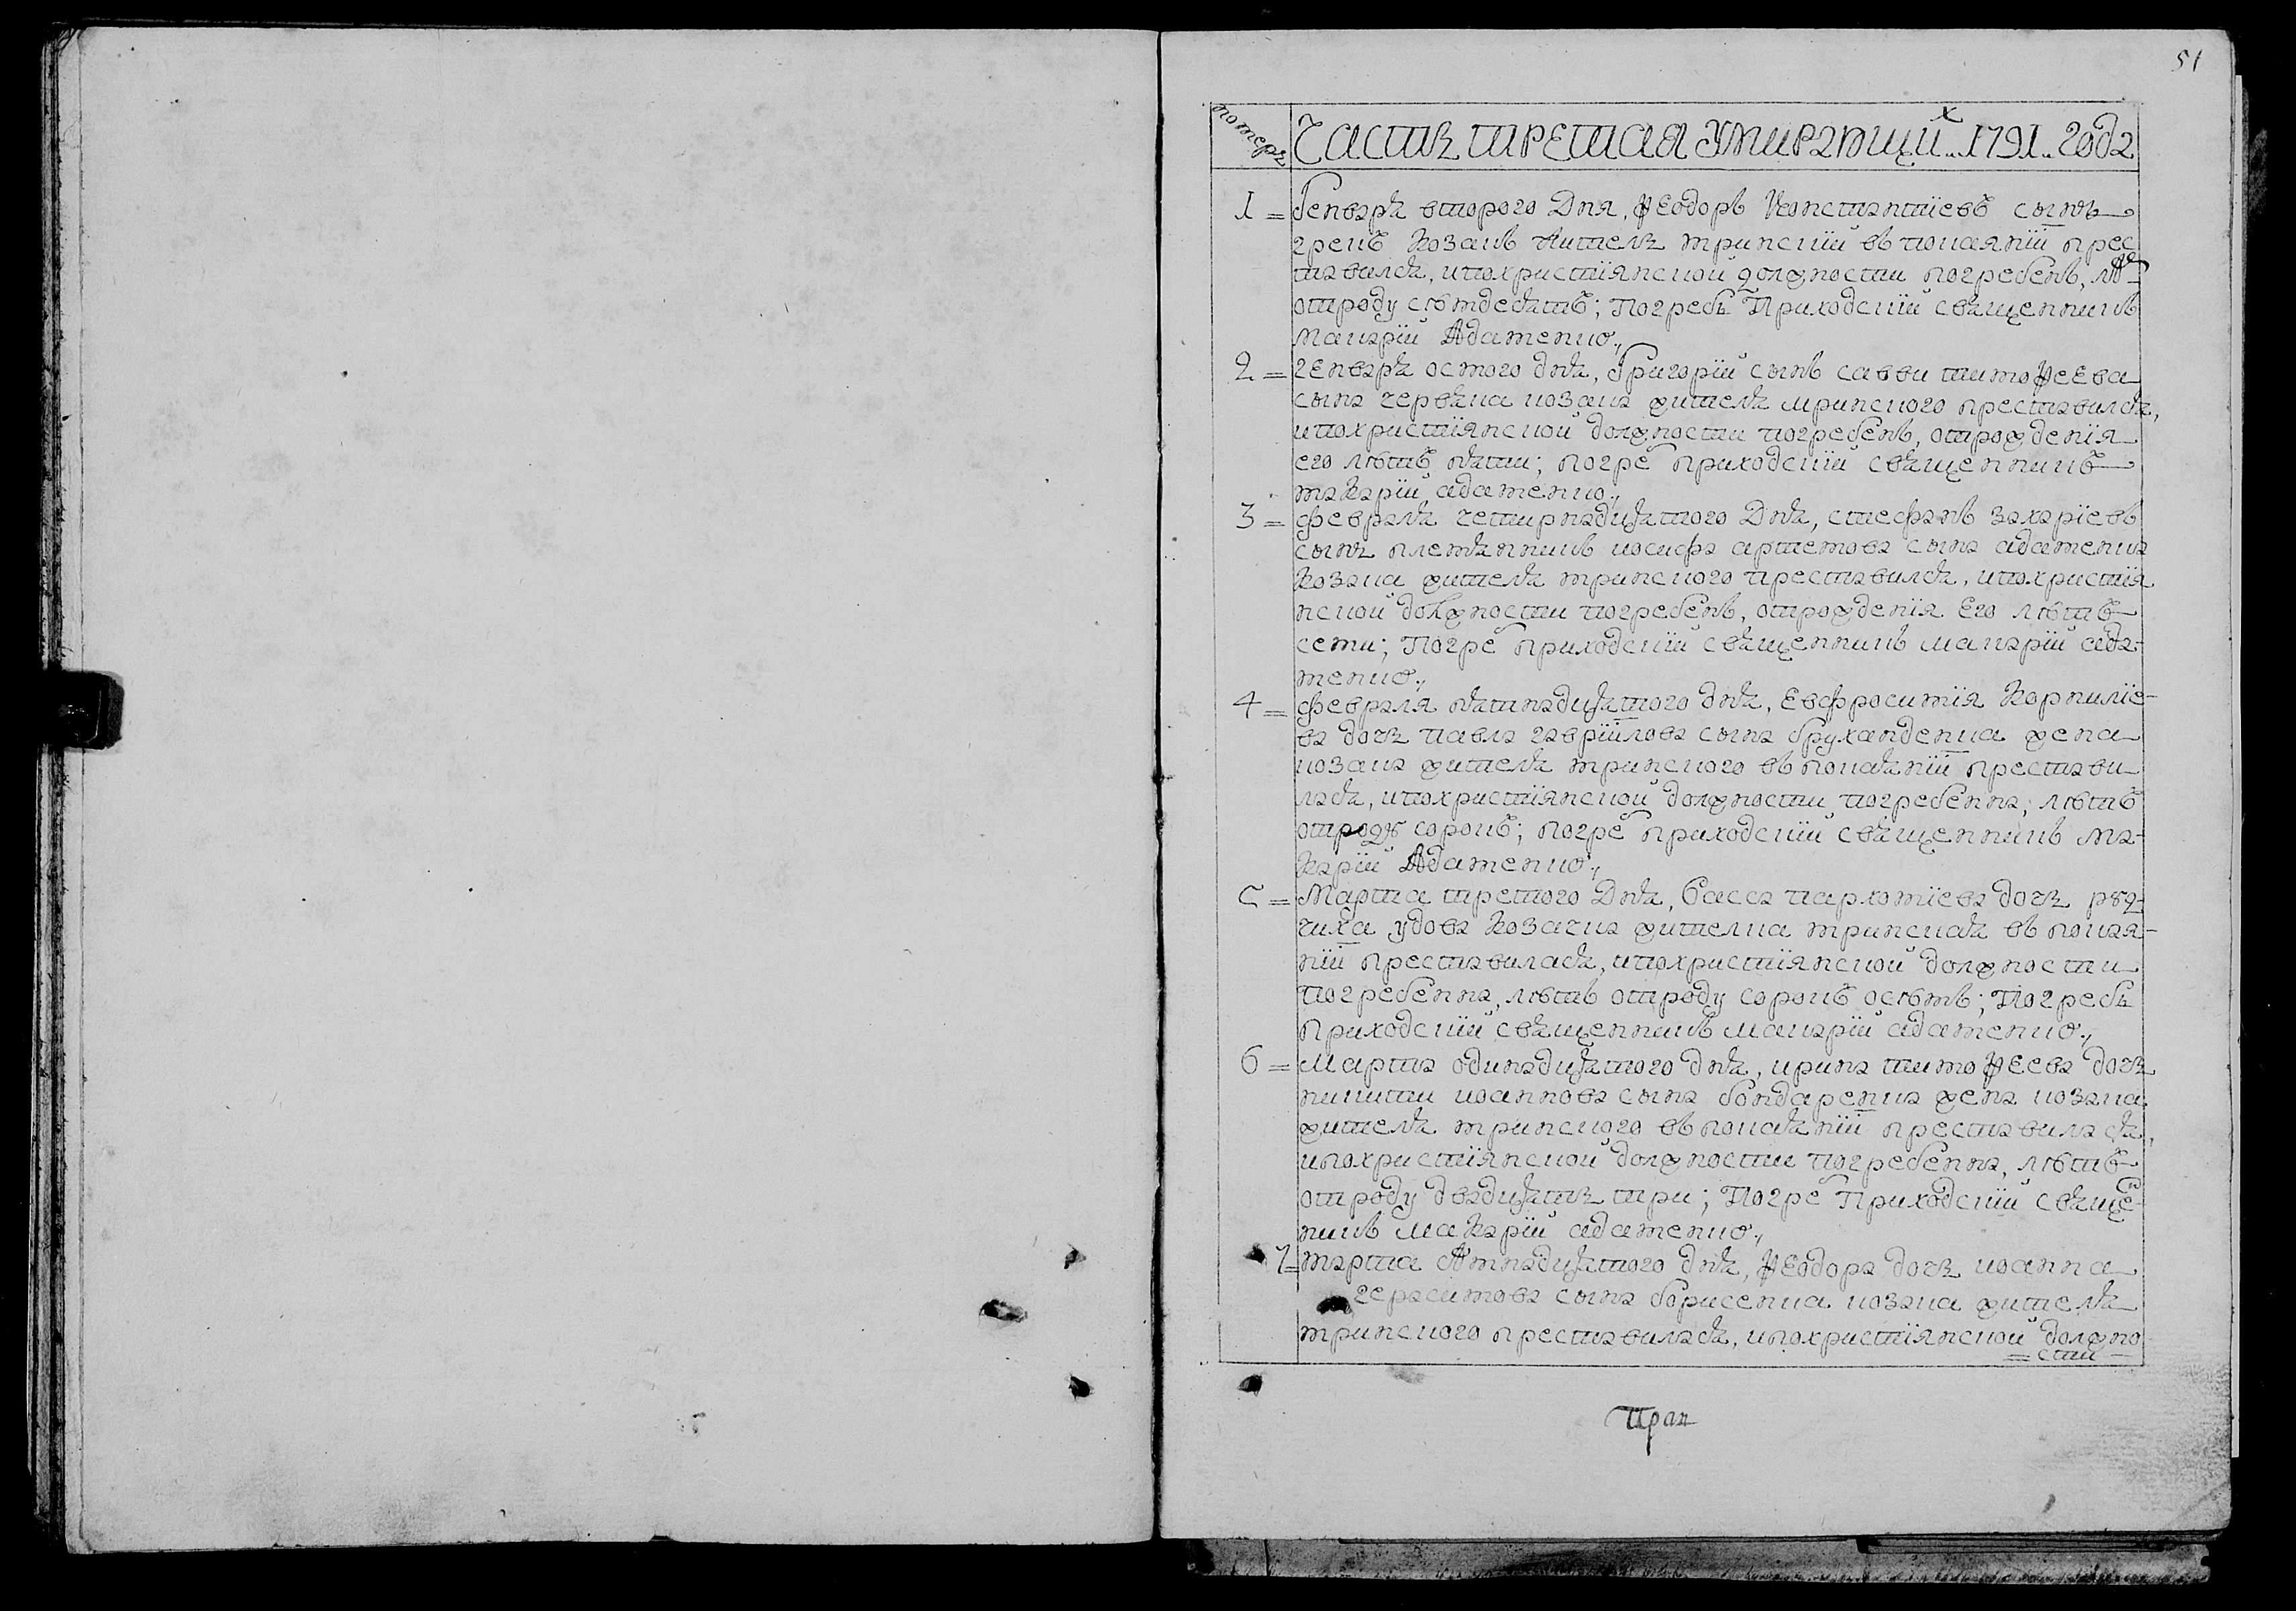 51
номеръ
Часть третая умирающихъ 1791 года
1 = Генваря второго Дня, Ѳеодоръ Константіевъ сынъ
грекъ козакъ житель мринскій въ покаяніи прес
тавился, и по християнской должности погребенъ, лѣ
от роду семдесятъ; Погребъ Приходскій священникъ
Макарій Адаменко.,
2 = Генваря осмого дня, Григорій сынъ саввы тимоѳеева
сына червяка козака жителя мринского преставился,
и по християнской должности погребенъ, от рожденія
его лѣтъ пяти; погребъ приходскій священникъ
макарій адаменко.,
3 = февраля четирнадцятого Дня, стефанъ захаріевъ
сынъ племянникъ иосифа артемова сына адаменка
козака жителя мринского преставился, и по христия
нской должности погребенъ, от рожденія Его лѣтъ
семи; Погребъ приходскій священникъ макарій ада-
менко.,
4 = февраля пятнадцятого дня, Евфросимія Корниліе-
ва дочь павла гавріилова сына бруханденка жена
козака жителя мринского въ покаяніи престави
лася, и по християнской должности погребенна, лѣтъ
от роду сорокъ; погребъ приходскій священникъ ма-
карій Адаменко.,
5 = Марта третого Дня, Васса пархоміева дочь
чиха удова козачка жителка мринская въ покая-
ніи преставилася, и по християнской должности
погребенна, лѣтъ от роду сорокъ осѣмъ; Погребъ
приходскій священникъ макарій адаменко.,
6 = Марта одинадцятого дня, ирина тимоѳеева дочь
никити иоаннова сына бондаренка жена козака
жителя мринского въ покаяніи преставилася,
и по християнской должности погребенна, лѣтъ
от роду двадцять три; Погребъ Приходскій свяще
никъ макарій адаменко.,
7 = марта дня, Ѳеодора дочь иоанна
герасимова сына борисенка козака жителя
мринского преставилася, и по християнской должно
= сти =